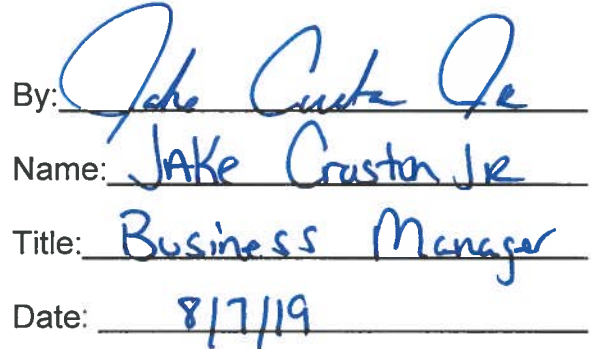 By: Jake Cruston Jr
Name: JAKe Cruston JR
Title: Business Manager
Date: 8/7/19